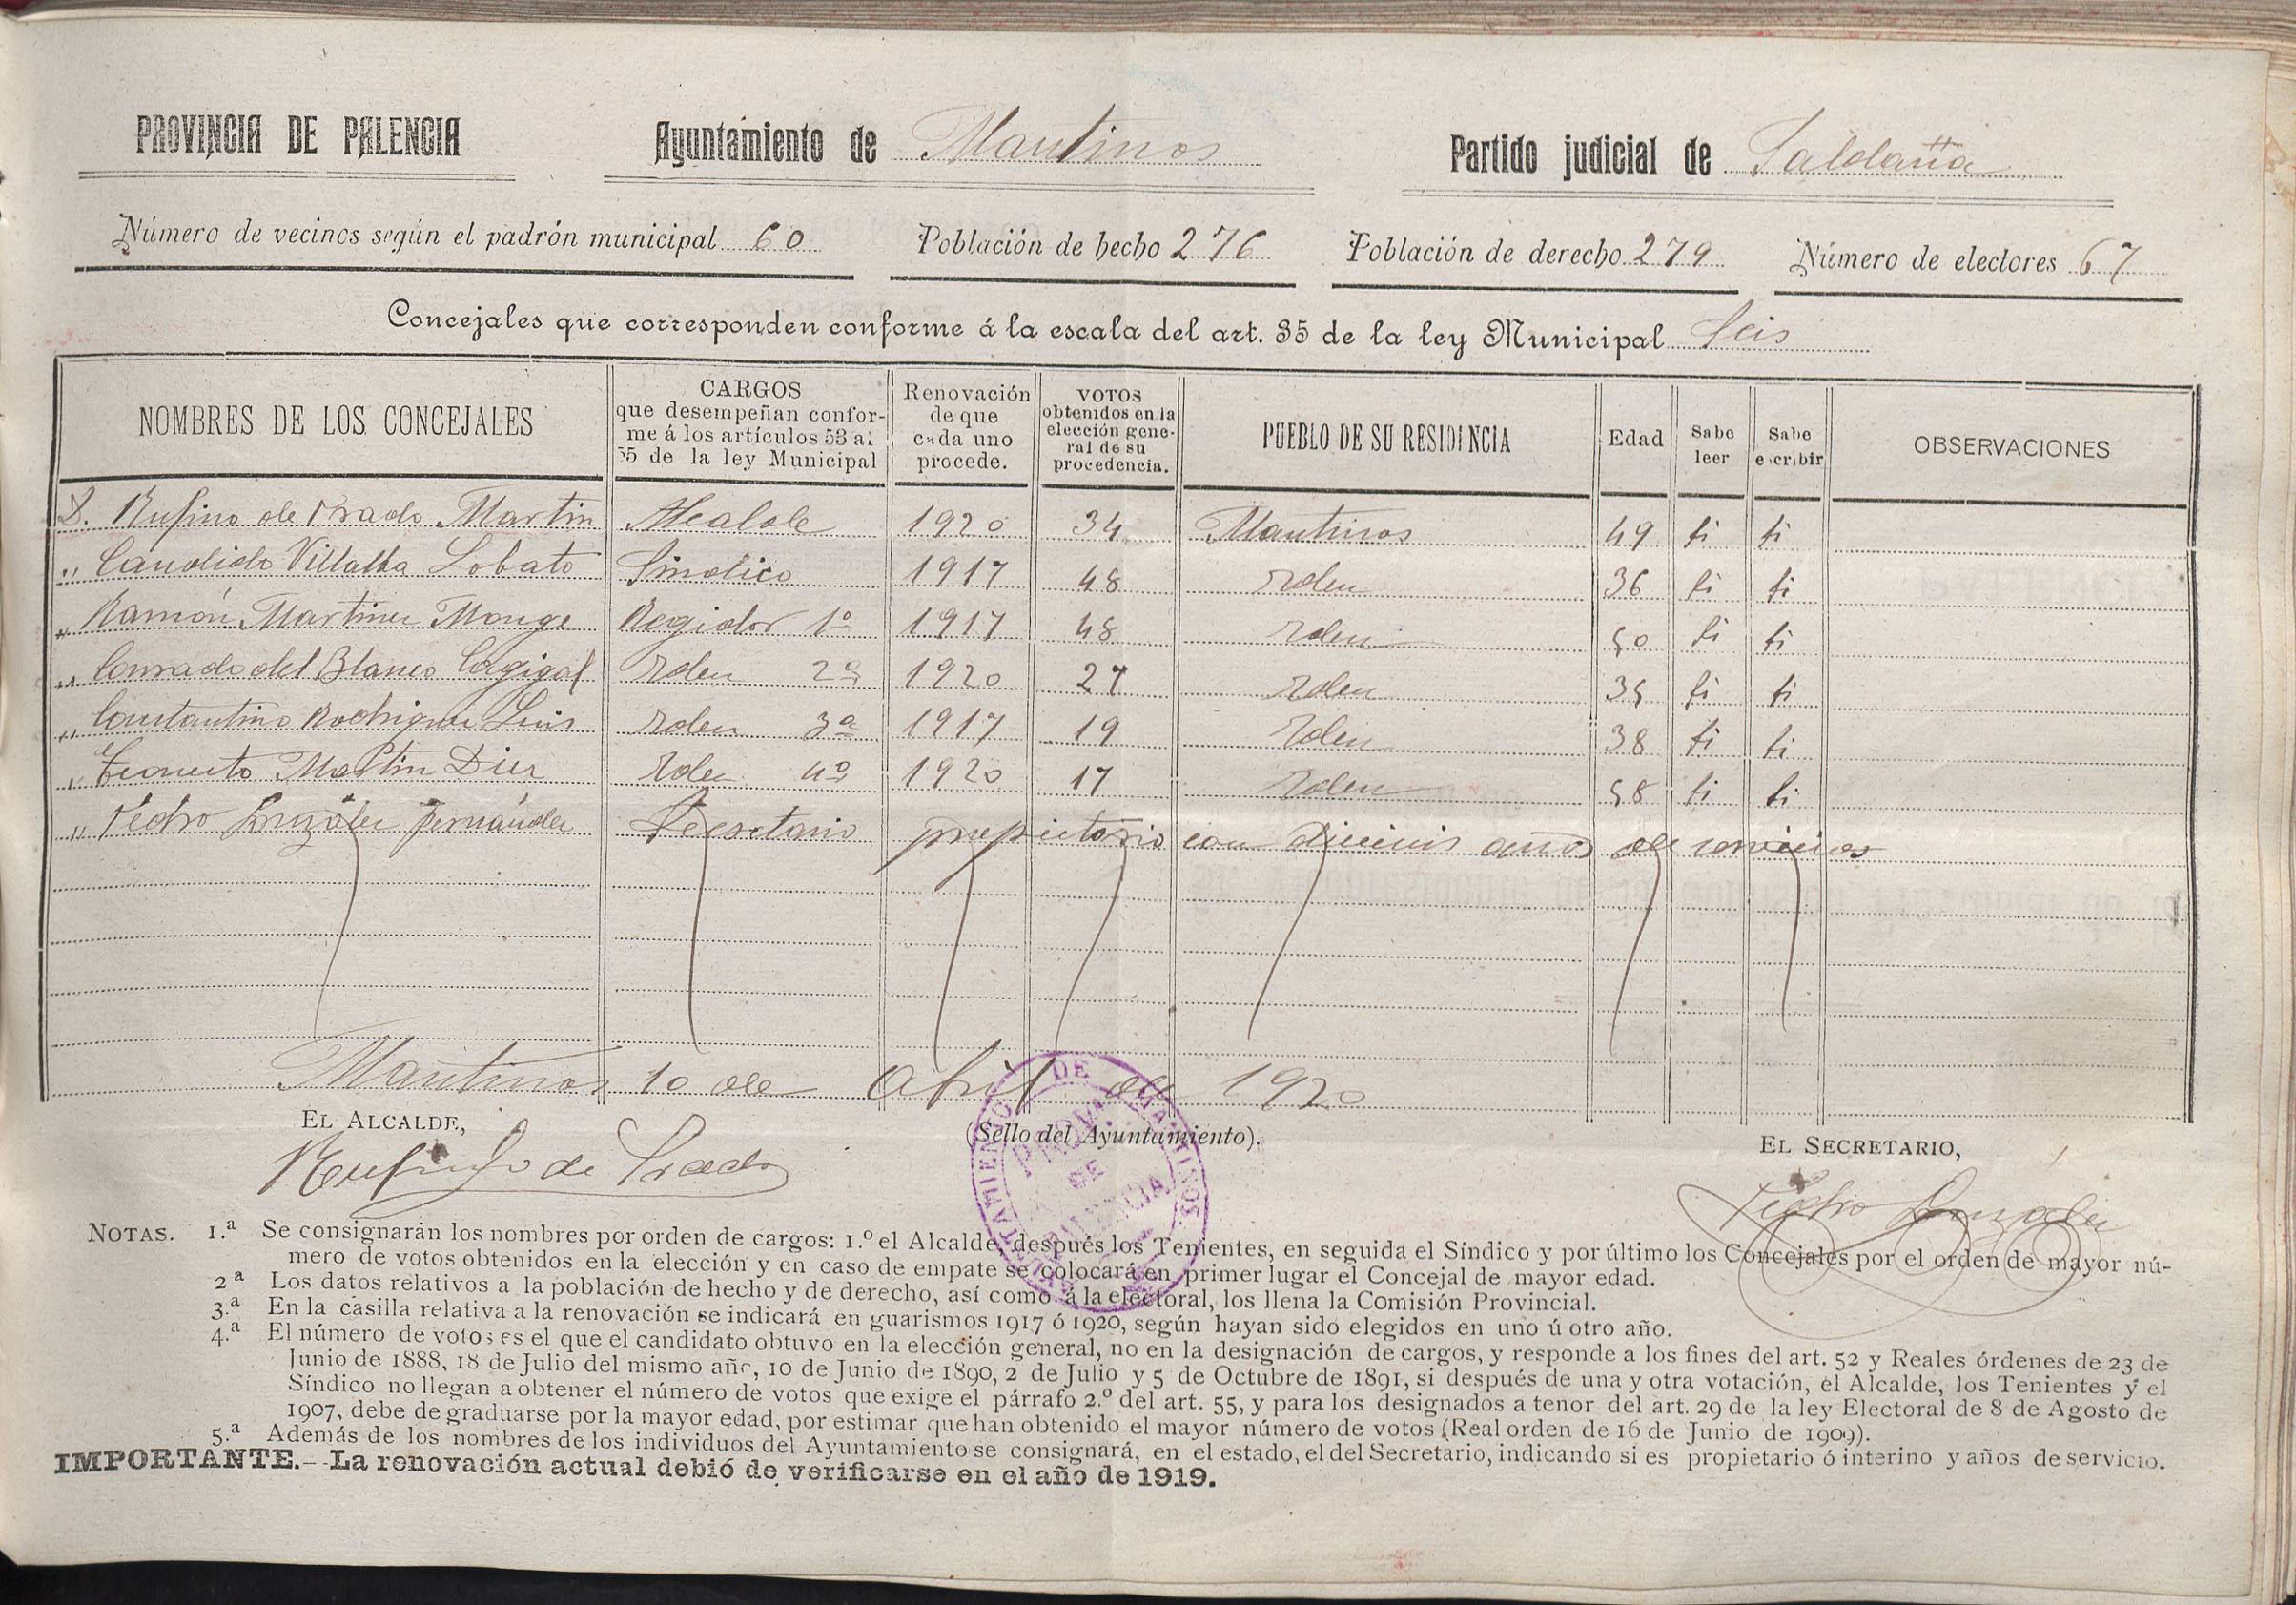 PROVINCIA DE PALENCIA Ayuntamiento de Mantinos Partido judicial de Saldaña
Número de vecinos según el padrón municipal 60 Población de hecho 276 Población de derecho 279 Número de electores 67
Concejales que corresponden conforme á la escala del art. 35 de la ley Municipal Seis
NOMBRES DE LOS CONCEJALES
CARGOS
que desempeñan confor-
me á los artículos 53 al
55 de la ley Municipal
Renovación
de que
cada uno
procede.
VOTOS
obtenidos en la
elección gene-
ral de su
procedencia.
PUEBLO DE SU RESIDENCIA
Edad
Sabe
leer
Sabe
escribir
OBSERVACIONES
D. Rufino de Prado Martin Alcalde 1920 34 Mantinos 49 si si
„ Candido Villalba Lobato Sindico 1917 48 Yden 36 si si
„ Ramón Martinez Monge Regidor 1º 1917 48 Yden 50 si si
„ Conrado del Blanco Cagigal Yden 2º 1920 27 Yden 35 si si
„ Constantino Rodriguez Luis Yden 3º 1917 19 Yden 38 si si
„ Martin Diez Yden 4º 1920 17 Yden 58 si si
„ Pedro González Fernández Secretario propietario con años de servicios
Mantinos 10 de Abril de 1920
EL ALCALDE,
(Sello del Ayuntamiento).
EL SECRETARIO,
Rufino de Prado
Pedro González
AYUNTAMIENTO DE MANTINOS
PROV.A
DE
PALENCIA
NOTAS. 1.ª Se consignarán los nombres por orden de cargos: 1.º el Alcalde, después los Tenientes, en seguida el Síndico y por último los Concejales por el orden de mayor nú-
mero de votos obtenidos en la elección y en caso de empate se colocará en primer lugar el Concejal de mayor edad.
2ª Los datos relativos a la población de hecho y de derecho, así como á la electoral, los llena la Comisión Provincial.
3.ª En la casilla relativa a la renovación se indicará en guarismos 1917 ó 1920, según hayan sido elegidos en uno ú otro año.
4.ª El número de votos es el que el candidato obtuvo en la elección general, no en la designación de cargos, y responde a los fines del art. 52 y Reales órdenes de 23 de
Junio de 1888, 18 de Julio del mismo año, 10 de Junio de 1890, 2 de Julio y 5 de Octubre de 1891, si después de una y otra votación, el Alcalde, los Tenientes y el
Síndico no llegan a obtener el número de votos que exige el párrafo 2.º del art. 55, y para los designados a tenor del art. 29 de la ley Electoral de 8 de Agosto de
1907, debe de graduarse por la mayor edad, por estimar que han obtenido el mayor número de votos (Real orden de 16 de Junio de 1909).
5.ª Además de los nombres de los individuos del Ayuntamiento se consignará, en el estado, el del Secretario, indicando si es propietario ó interino y años de servicio.
IMPORTANTE.—La renovación actual debió de verificarse en el año de 1919.